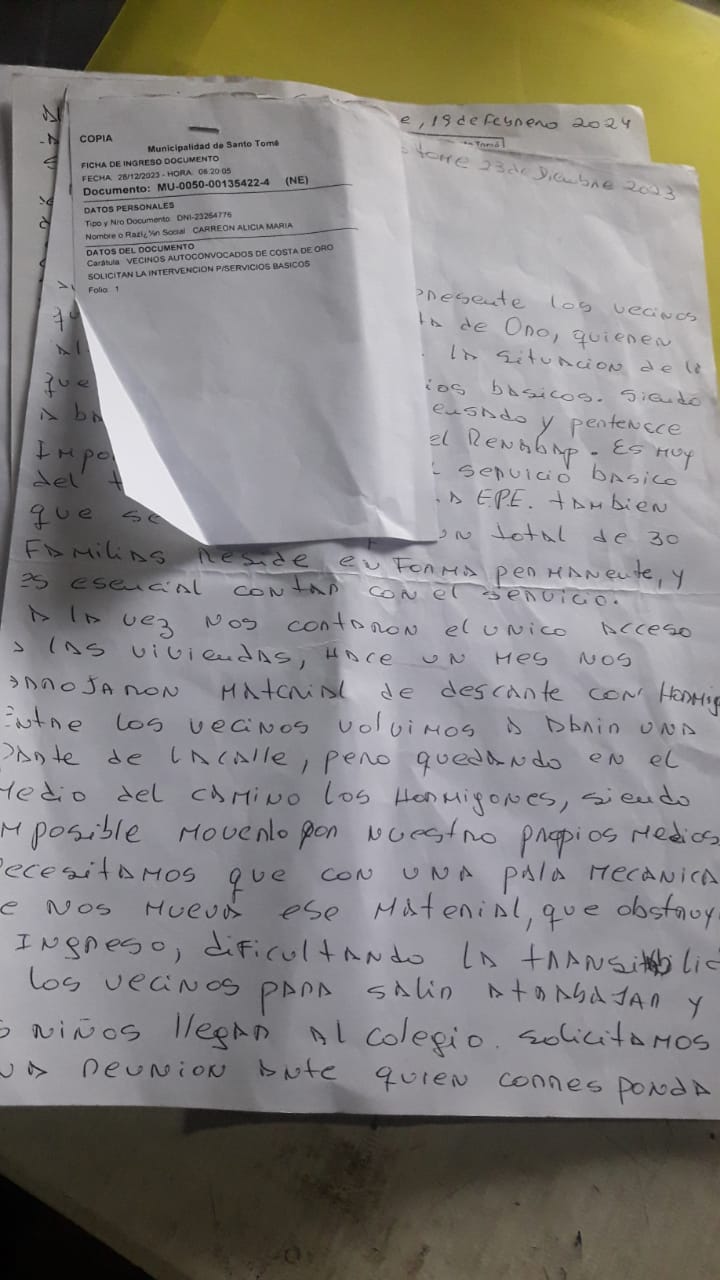 e, 19 de Febrero 2024
Tomé 23 de Diciembre 2023
COPIA
Municipalidad de Santo Tomé
FICHA DE INGRESO DOCUMENTO
FECHA 28/12/2023 - HORA: 08:20:05
Documento: MU-0050-00135422-4 (NE)
DATOS PERSONALES
Tipo y Nro Documento DNI-23264776
Nombre o Razï¿½n Social CARREON ALICIA MARIA
DATOS DEL DOCUMENTO
Carátula VECINOS AUTOCONVOCADOS DE COSTA DE ORO
SOLICITAN LA INTERVENCION P/SERVICIOS BASICOS
Folio 1
presente los vecinos
de Oro, quienen
Al la situacion de la
que ios basicos. siendo
A ba ensado y pertenece
Impo el Renabap. Es muy
del t servicio basico
que se A E.P.E. tambien
un total de 30
Familias Reside en forma permanente, y
es esencial contar con el servicio.
A la vez nos contaron el unico acceso
A las viviendas, hace un mes nos
arrojaron material de descarte con Hormig
Entre los vecinos volvimos a abrir una
parte de la calle, pero quedando en el
Medio del camino los Hormigones, siendo
mposible moverlo por nuestro propios medios
ecesitamos que con una pala mecanica
e nos mueva ese material, que obstruy
Ingreso, dificultando la transitablic
los vecinos para salir a trabajar y
s niños llegar al colegio. solicitamos
na reunion ante quien corresponda